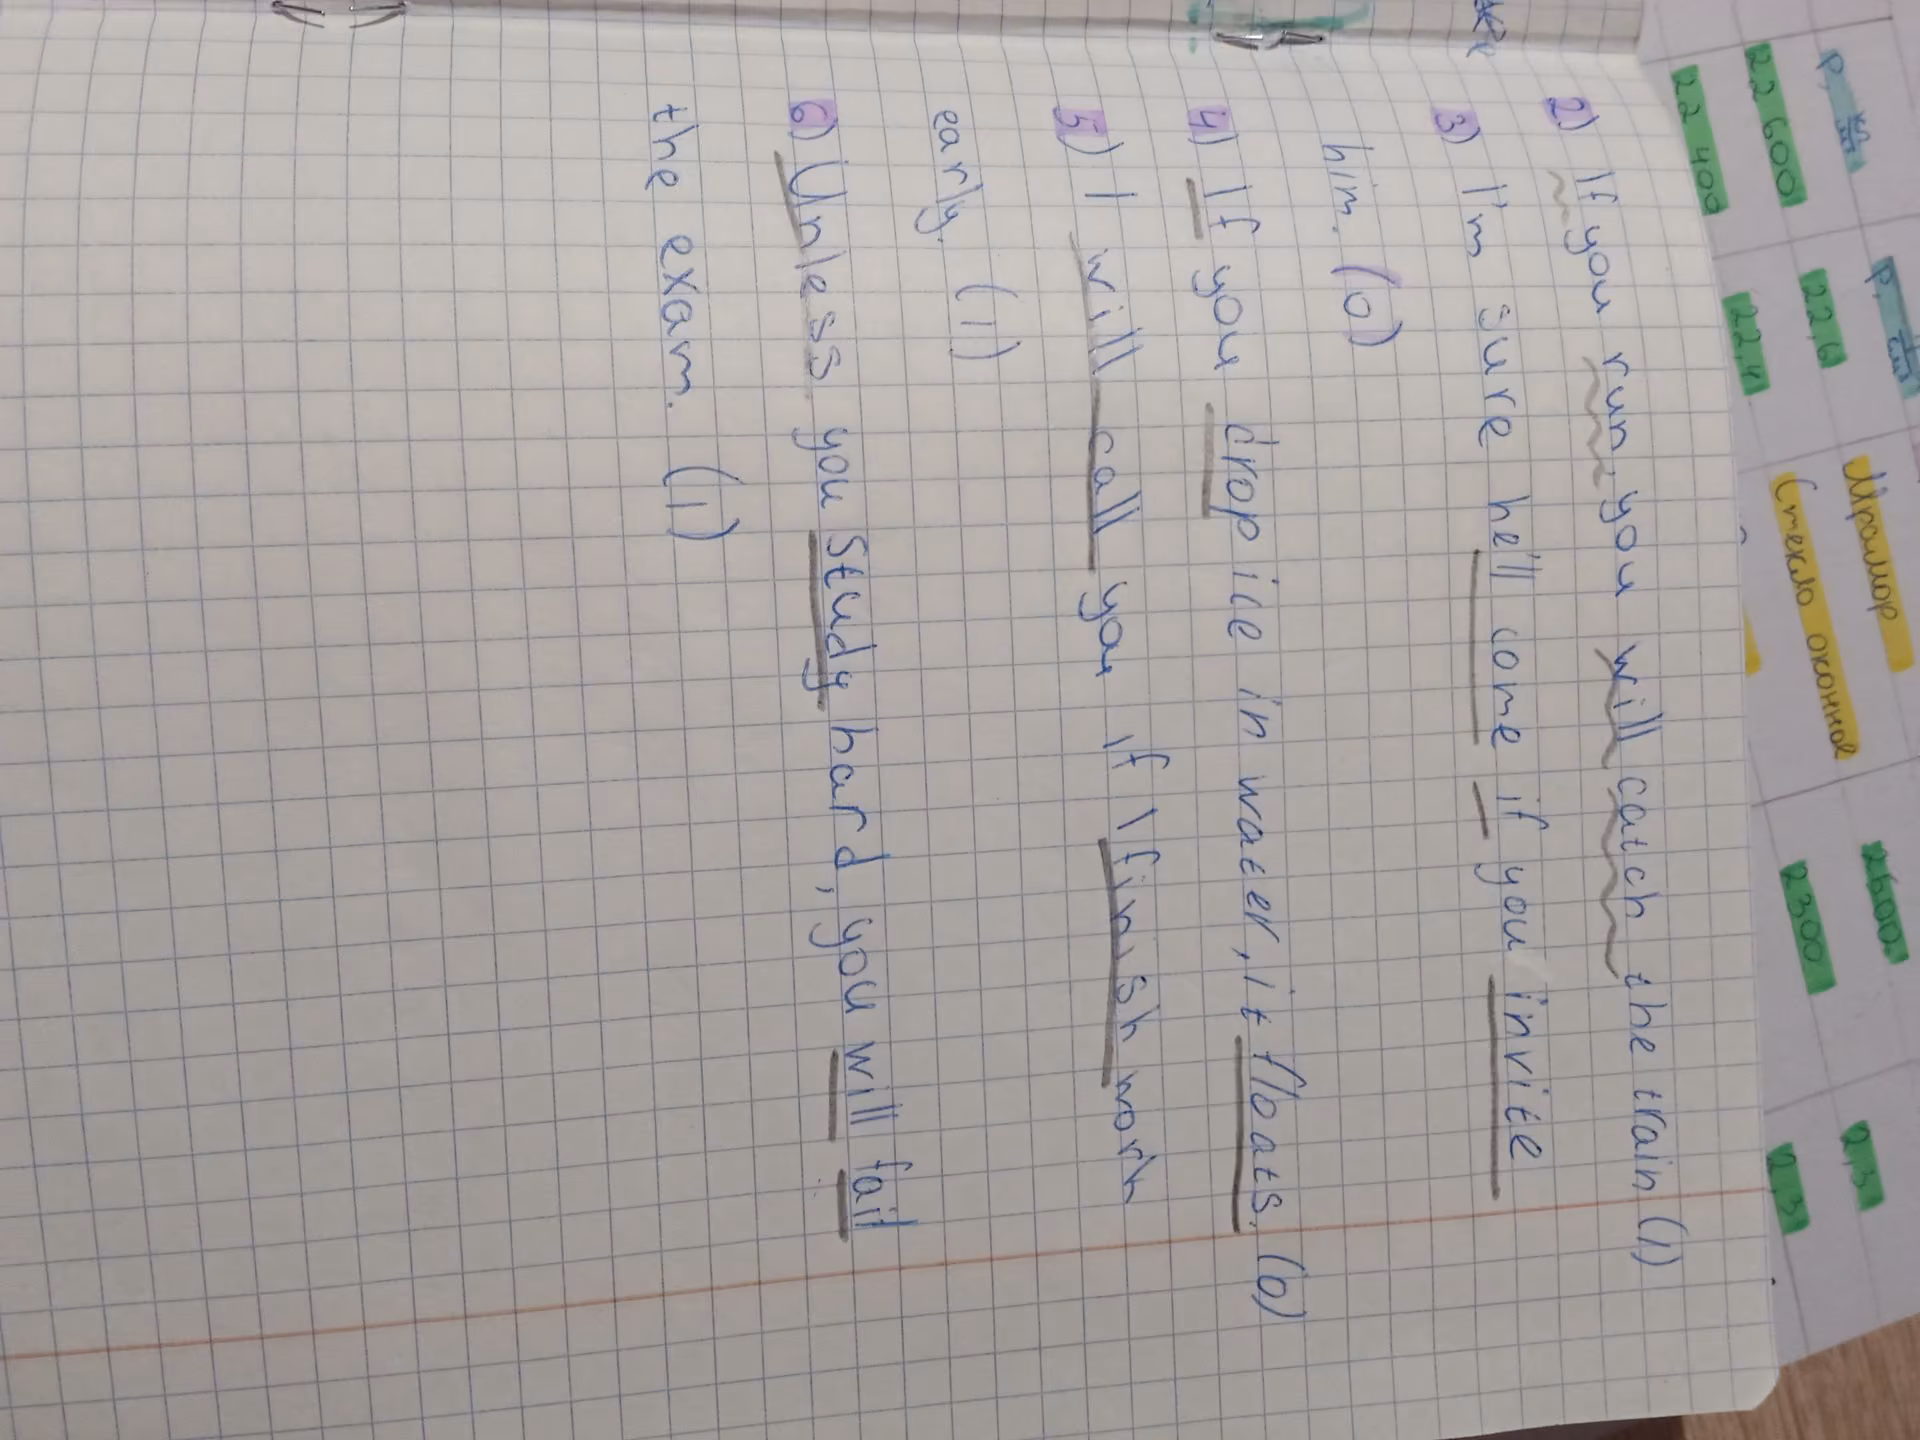 2) If you run, you will catch the train (1)
3) I'm sure he'll come if you invite
him. (0)
4) If you drop ice in water, it floats. (0)
5) I will call you if I finish work
early. (1)
6) Unless you study hard, you will fail
the exam. (1)
Мрамор
2600
2,3
22 600
22,6
Стекло оконное
2300
2,3
22 400
22,4